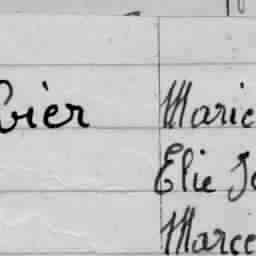 vier Marie
Elie Jo
Marce